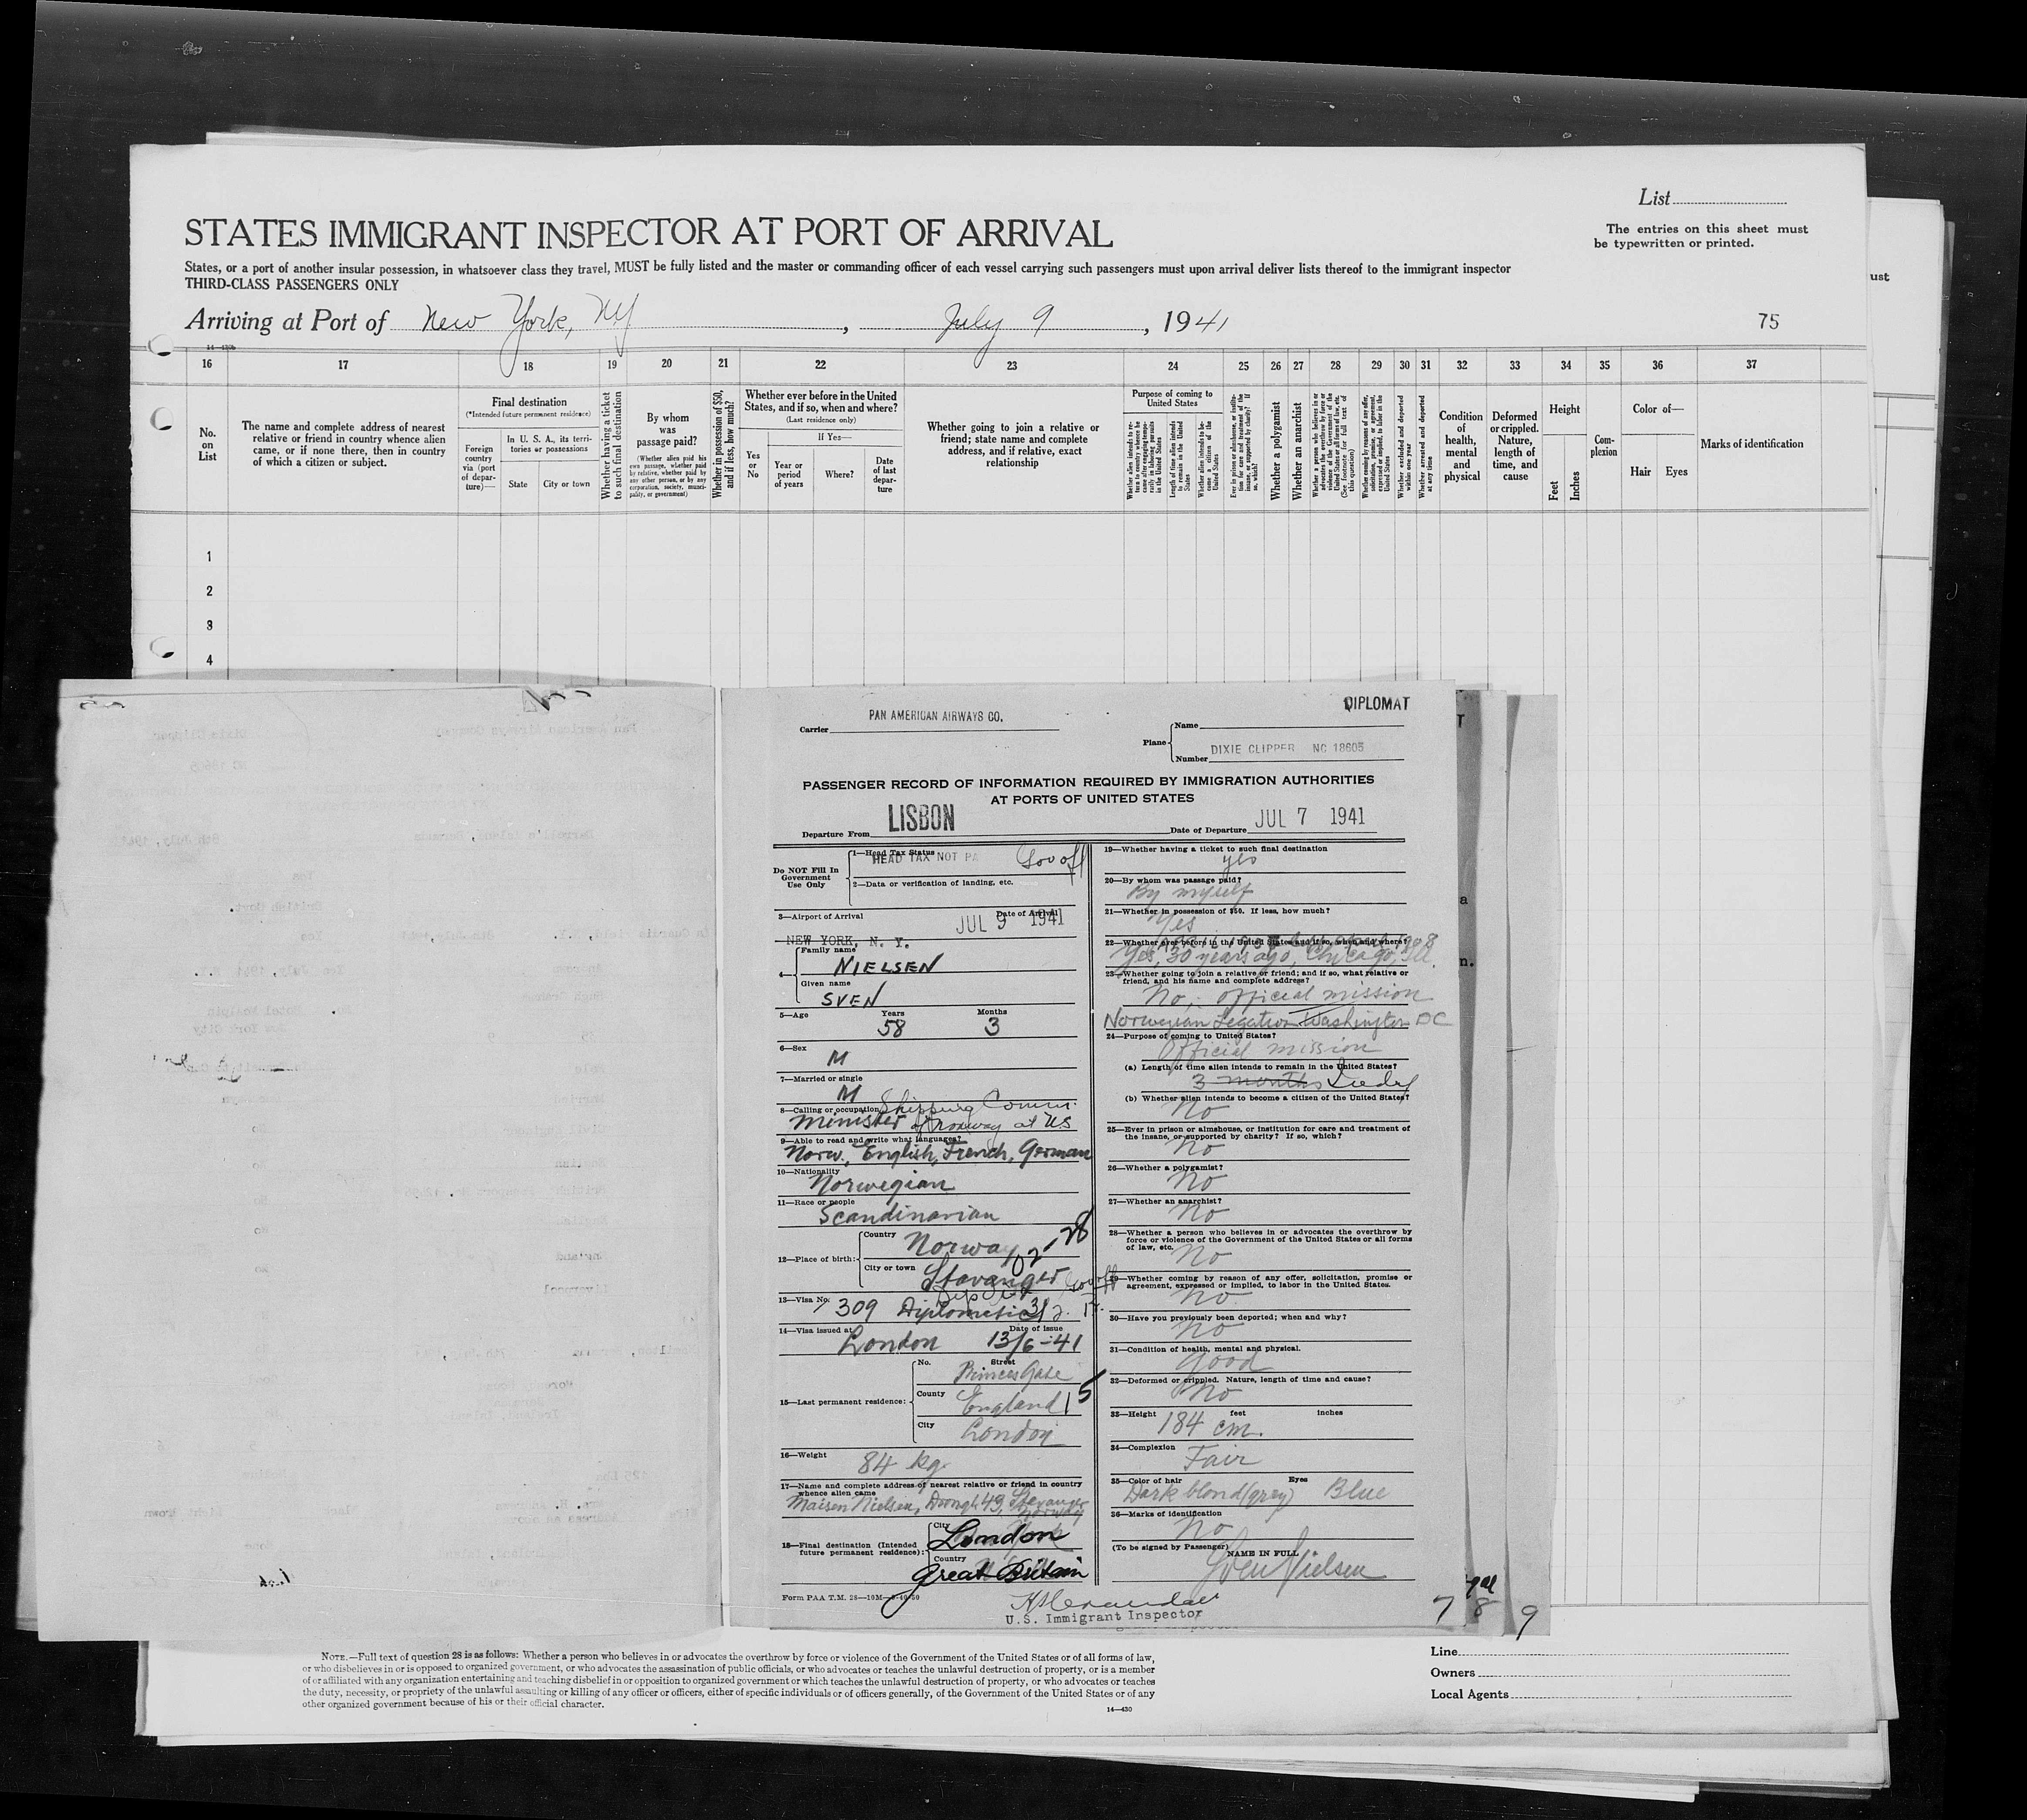 List
The entries on this sheet must
be typewritten or printed.
STATES IMMIGRANT INSPECTOR AT PORT OF ARRIVAL
States, or a port of another insular possession, in whatsoever class they travel, MUST be fully listed and the master or commanding officer of each vessel carrying such passengers must upon arrival deliver lists thereof to the immigrant inspector
THIRD-CLASS PASSENGERS ONLY
ust
Arriving at Port of New York, NY, July 9, 1941
75
16 17 18 19 20 21 22 23 24 25 26 27 28 29 30 31 32 33 34 35 36 37
No.
on
List
The name and complete address of nearest
relative or friend in country whence alien
came, or if none there, then in country
of which a citizen or subject.
Final destination
(*Intended future permanent residence)
Foreign
country
via (port
of depar-
ture)—
In U. S. A., its terri-
tories or possessions
State
City or town
Whether having a ticket
to such final destination
By whom
was
passage paid?
(Whether alien paid his
own passage, whether paid
by relative, whether paid by
any other person, or by any
corporation, society, munici-
pality, or government)
Whether in possession of $50,
and if less, how much?
Whether ever before in the United
States, and if so, when and where?
(Last residence only)
If Yes—
Yes
or
No
Year or
period
of years
Where?
Date
of last
depar-
ture
Whether going to join a relative or
friend; state name and complete
address, and if relative, exact
relationship
Purpose of coming to
United States
Length of time alien intends
to remain in the United
States
Whether alien intends to be-
come a citizen of the
United States
Whether a polygamist
Whether an anarchist
Whether excluded and deported
within one year
Whether arrested and deported
at any time
Condition
of
health,
mental
and
physical
Deformed
or crippled.
Nature,
length of
time, and
cause
Height
Feet
Inches
Com-
plexion
Color of—
Hair
Eyes
Marks of identification
1
2
3
4
DIPLOMAT
PAN AMERICAN AIRWAYS CO.
Carrier
Plane
Name
Number
DIXIE CLIPPER NC 18605
PASSENGER RECORD OF INFORMATION REQUIRED BY IMMIGRATION AUTHORITIES
AT PORTS OF UNITED STATES
Departure From LISBON
Date of Departure JUL 7 1941
Do NOT Fill In
Government
Use Only
1—Head Tax Status
HEAD TAX NOT PA
Gov off
2—Data or verification of landing, etc.
3—Airport of Arrival
Date of Arrival
JUL 9 1941
NEW YORK, N. Y.
4—
Family name
NIELSEN
Given name
SVEN
5—Age
Years
58
Months
3
6—Sex
M
7—Married or single
M
8—Calling or occupation Shipping Comm.
Minister of Norway at US
9—Able to read and write what languages?
Norw., English, French, German
10—Nationality
Norwegian
11—Race or people
Scandinavian
12—Place of birth:
Country
Norway
City or town
Stavanger
13—Visa No.
309 Diplomatic
14—Visa issued at
London
Date of issue
13/6-41
15—Last permanent residence:
No.
Street
Princes Gate
County
England
15
City
London
16—Weight
84 kg.
17—Name and complete address of nearest relative or friend in country
whence alien came
Maisen Nielsen, 49, Stavanger
Norway
18—Final destination (Intended
future permanent residence):
City
London
Country
Great Britain
Form PAA T.M. 28—10M—
19—Whether having a ticket to such final destination
yes
20—By whom was passage paid?
By myself
21—Whether in possession of $50. If less, how much?
Yes
22—Whether ever before in the United States and if so, when and where?
Yes, 30 years ago, Chicago, Ill.
23—Whether going to join a relative or friend; and if so, what relative or
friend, and his name and complete address?
No, official mission
Norwegian Legation Washington DC
24—Purpose of coming to United States?
Official mission
(a) Length of time alien intends to remain in the United States?
3 months
(b) Whether alien intends to become a citizen of the United States?
No
25—Ever in prison or almshouse, or institution for care and treatment of
the insane, or supported by charity? If so, which?
No
26—Whether a polygamist?
No
27—Whether an anarchist?
No
28—Whether a person who believes in or advocates the overthrow by
force or violence of the Government of the United States or all forms
of law, etc.
No
29—Whether coming by reason of any offer, solicitation, promise or
agreement, expressed or implied, to labor in the United States.
No
30—Have you previously been deported; when and why?
No
31—Condition of health, mental and physical.
Good
32—Deformed or crippled. Nature, length of time and cause?
No
33—Height
feet
inches
184 cm.
34—Complexion
Fair
35—Color of hair
Eyes
Dark blond (grey)
Blue
36—Marks of identification
No
(To be signed by Passenger)
NAME IN FULL
Sven Nielsen
U.S. Immigrant Inspector
7 8 9
NOTE.—Full text of question 28 is as follows: Whether a person who believes in or advocates the overthrow by force or violence of the Government of the United States or of all forms of law,
or who disbelieves in or is opposed to organized government, or who advocates the assassination of public officials, or who advocates or teaches the unlawful destruction of property, or is a member
of or affiliated with any organization entertaining and teaching disbelief in or opposition to organized government or which teaches the unlawful destruction of property, or who advocates or teaches
the duty, necessity, or propriety of the unlawful assaulting or killing of any officer or officers, either of specific individuals or of officers generally, of the Government of the United States or of any
other organized government because of his or their official character.
14—430
Line
Owners
Local Agents